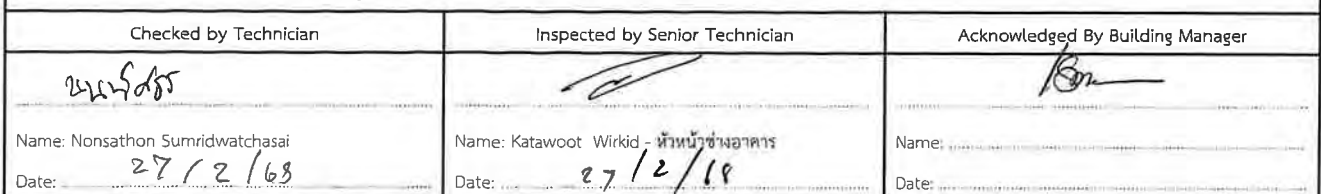 Checked by Technician
Inspected by Senior Technician
Acknowledged By Building Manager
Name: Nonsathon Sumridwatchasai
Name: Katawoot Wirkid - หัวหน้าช่างอาคาร
Name:
Date: 27/2/68
Date: 27/2/68
Date: